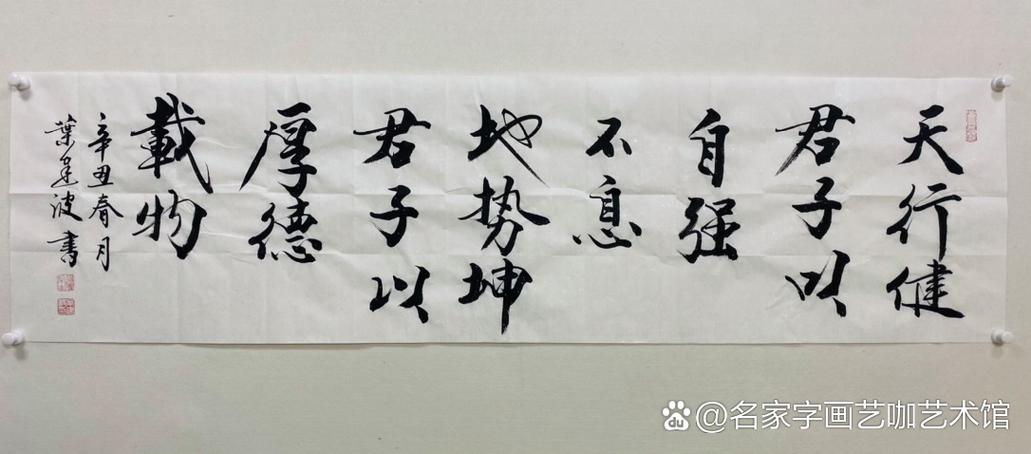 天行健
君子以
自强
不息
地势坤
君子以
厚德
載物
辛丑春月
葉建波書
@名家字画艺咖艺术馆